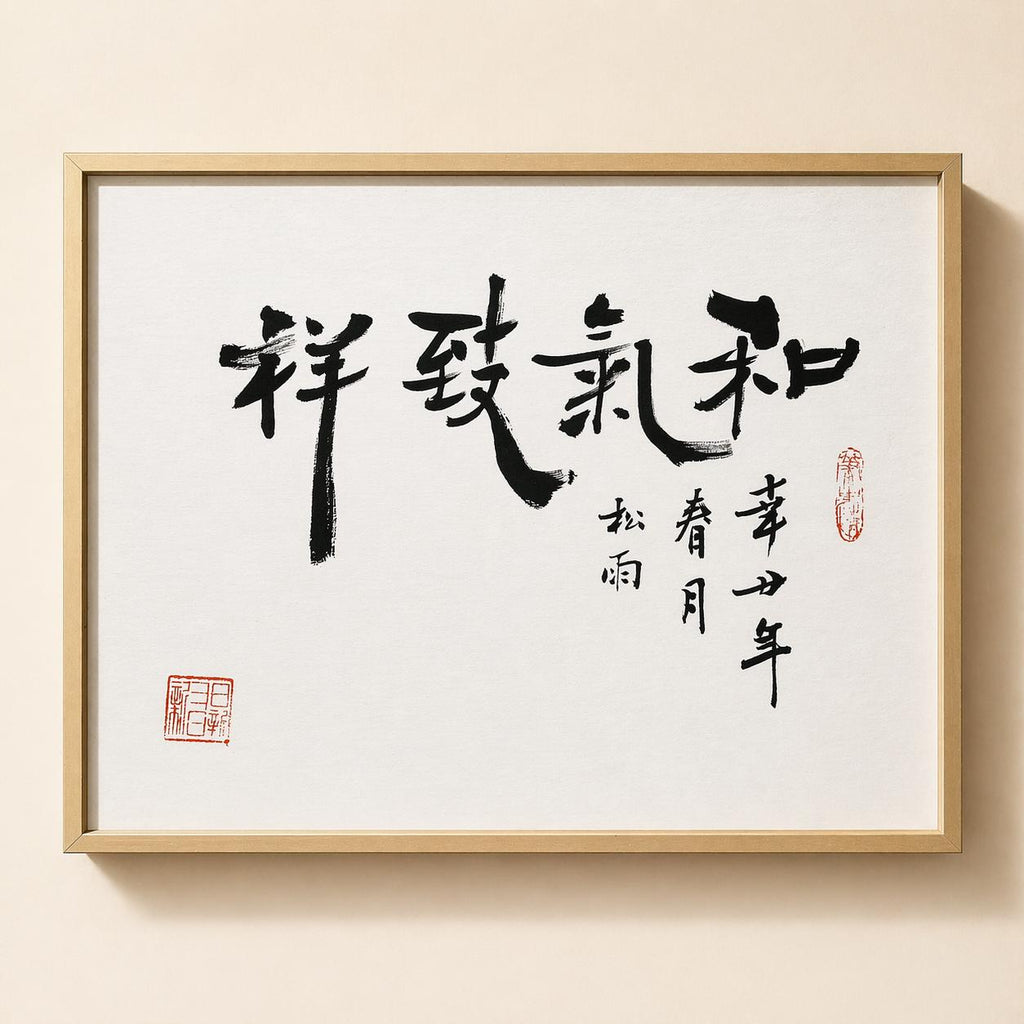 和氣致祥
辛丑年
春月
松雨